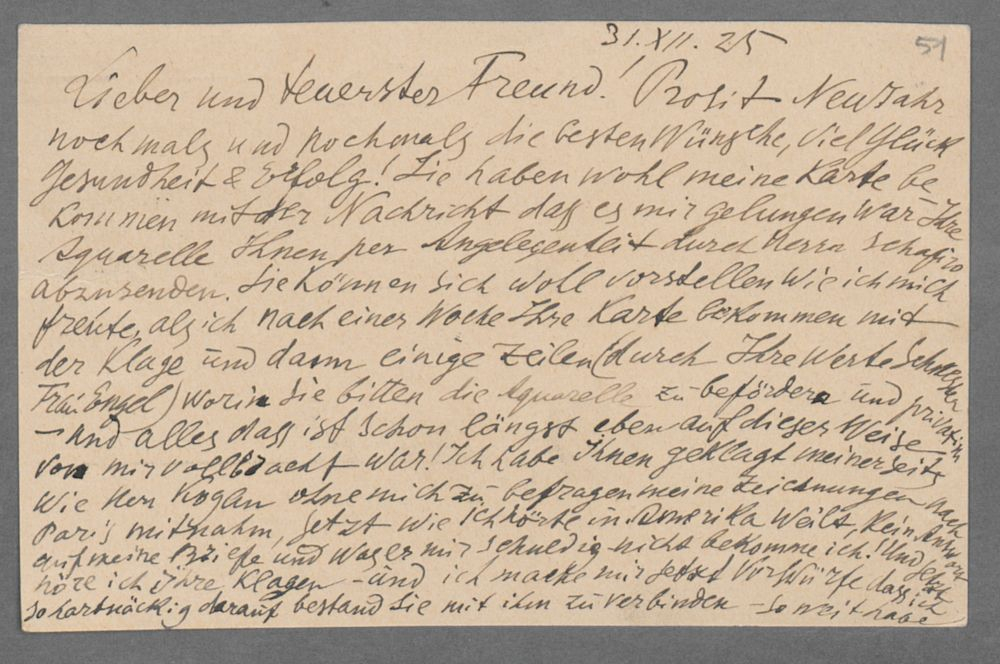 51
31.XII.25
Lieber und teuerster Freund! Prosit Neujahr
nochmals und nochmals die besten Wünsche, viel Glück
Gesundheit & Erfolg! Sie haben wohl meine Karte be-
kommen mit der Nachricht dass es mir gelungen war Ihre
Aquarelle Ihnen per Angelegenheit durch Herrn Schapiro
abzusenden. Sie können sich woll vorstellen wie ich mich
freute, als ich nach einer Woche Ihre Karte bekommen mit
der Klage und dann einige Zeilen (durch Ihre werte Schwester
Frau Engel) worin Sie bitten die Aquarelle zu befördern und privatim
– und alles dass ist schon längst eben auf dieser Weise
von mir vollbracht war! Ich habe Ihnen geklagt meinerseits
wie Herr Kogan ohne mich zu befragen meine Zeichnungen nach
Paris mitnahm, jetzt wie ich hörte in Amerika weilt, kein Antwort
auf meine Briefe und was er mir schuldig nicht bekomme ich! Und jetzt
höre ich ihre Klagen – und ich mache mir jetzt Vorwürfe dass ich
so hartnäckig darauf bestand Sie mit ihm zu verbinden – so weit habe